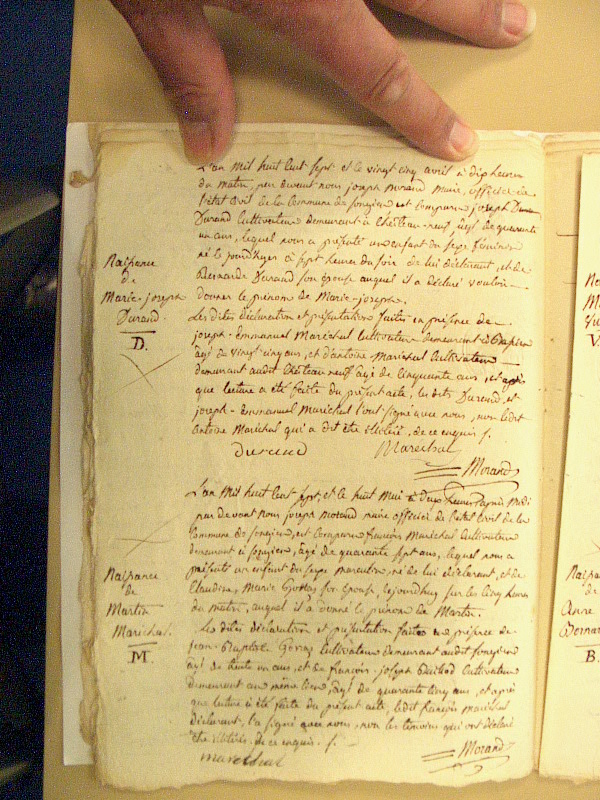 L'an mil huit cent sept et le vingt cinq avril à dix heures
du matin, par devant nous joseph Morand maire, officier de
l'état civil de la Commune de songieu est comparu joseph
Durand Cultivateur demeurant à Château-neuf, âgé de quarante
un ans, lequel nous a présenté un enfant du sexe féminin
né le jourd'hyer à sept heures du soir de lui déclarant, et de
Bernarde Durand son épouse auquel il a déclaré vouloir
donner le prénom de Marie-josephe.
Naissance
de
Marie-joseph
Durand.
D.
Les dites déclaration et présentation faites en présence de
joseph-Emmanuel Maréchal Cultivateur demeurant
âgé de vingt cinq ans, et d'antoine Maréchal Cultivateur
demeurant audit Château neuf âgé de Cinquante ans, et après
que lecture a été faite du présent acte, les dits Durand et
joseph-Emmanuel Maréchal l'ont signé avec nous, non ledit
Antoine Maréchal qui a dit être illitéré, de ce enquis ./.
Durand Maréchal
Morand
L'an Mil huit Cent Sept, et le huit Mai à deux heures après Midi
par devant nous joseph Morand maire officier de l'état Civil de la
Commune de songieu, est Comparu françois Maréchal Cultivateur
demeurant à songieu, âgé de quarante sept ans, lequel nous a
présenté un enfant du sexe masculin, né de lui déclarant, et de
Claudine Marie son Epouse, Cejourdhuy sur les Cinq heures
du matin, auquel il a donné le prénom de Martin.
Naissance
de
Martin
Maréchal.
M.
Les dites déclaration et présentation faites en présence de
jean-Baptiste Cultivateur demeurant audit songieu
âgé de trente un ans, et de françois-joseph Cultivateur
demeurant au même lieu, âgé de quarante Cinq ans, et après
que lecture a été faite du présent acte, ledit françois Maréchal
déclarant, l'a signé avec nous, non les témoins qui ont déclaré
être illitérés de ce enquis ./.
marechal
Morand
V.
Naissance
de
Anne
Bernard
B.